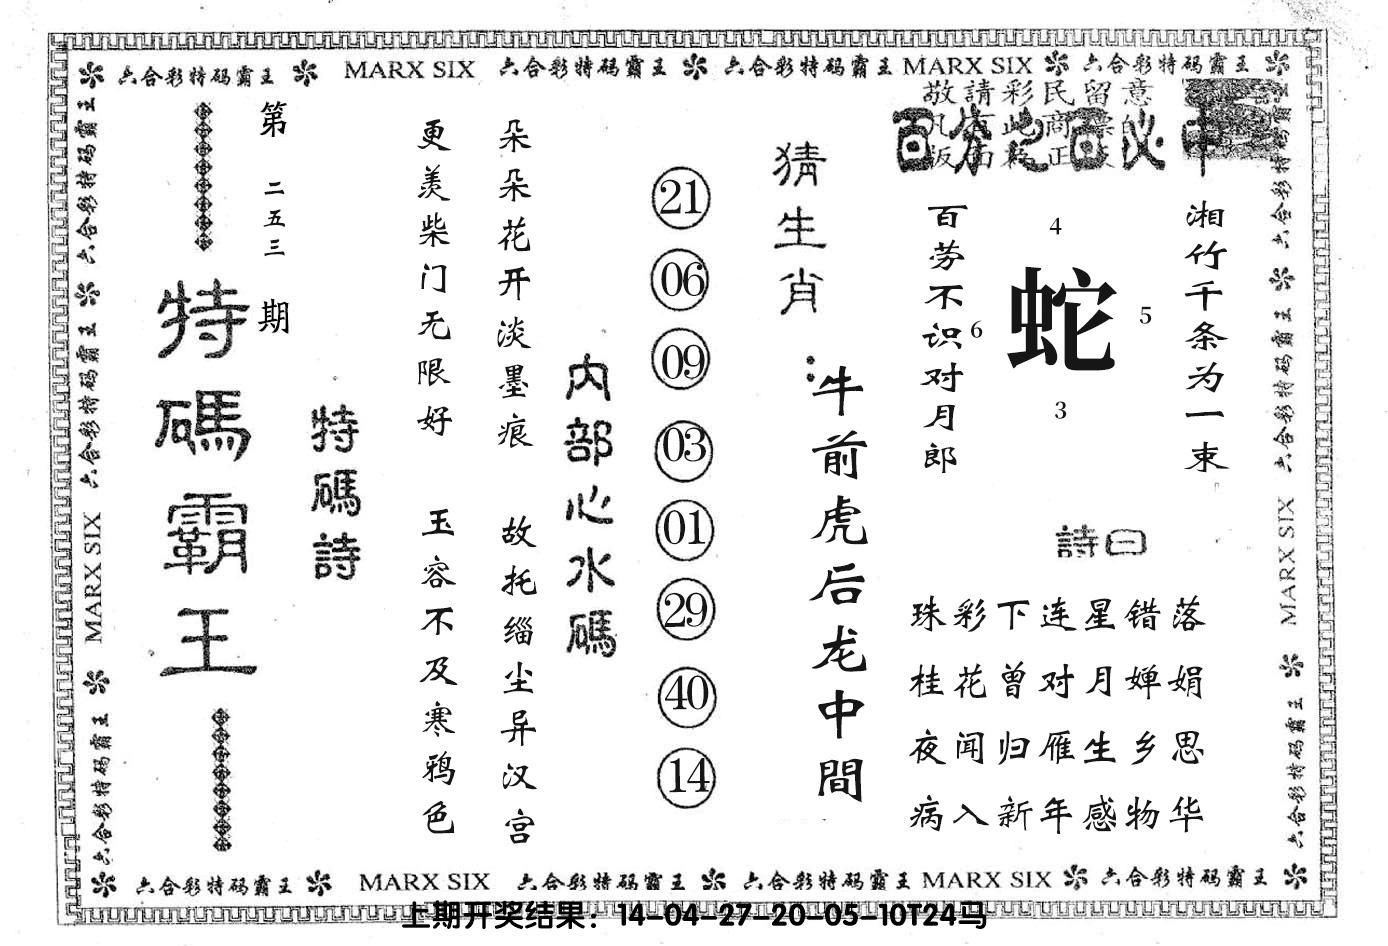 六合彩特码霸王 MARX SIX 六合彩特码霸王 六合彩特码霸王 MARX SIX 六合彩特码霸王
敬請彩民留意
百分之百必中
第二五三期
特碼霸王
特碼詩
更羡柴门无限好 玉容不及寒鸦色
朵朵花开淡墨痕 故托缁尘异汉宫
内部心水碼
21
06
09
03
01
29
40
14
猜生肖：
牛前虎后龙中間
百劳不识对月郎
4
6
蛇
5
3
湘竹千条为一束
詩曰
珠彩下连星错落
桂花曾对月婵娟
夜闻归雁生乡思
病入新年感物华
六合彩特码霸王 六合彩特码霸王 MARX SIX 六合彩特码霸王
六合彩特码霸王 六合彩特码霸王 MARX SIX 六合彩特码霸王
六合彩特码霸王 MARX SIX 六合彩特码霸王 六合彩特码霸王 MARX SIX 六合彩特码霸王
上期开奖结果：14-04-27-20-05-10T24马